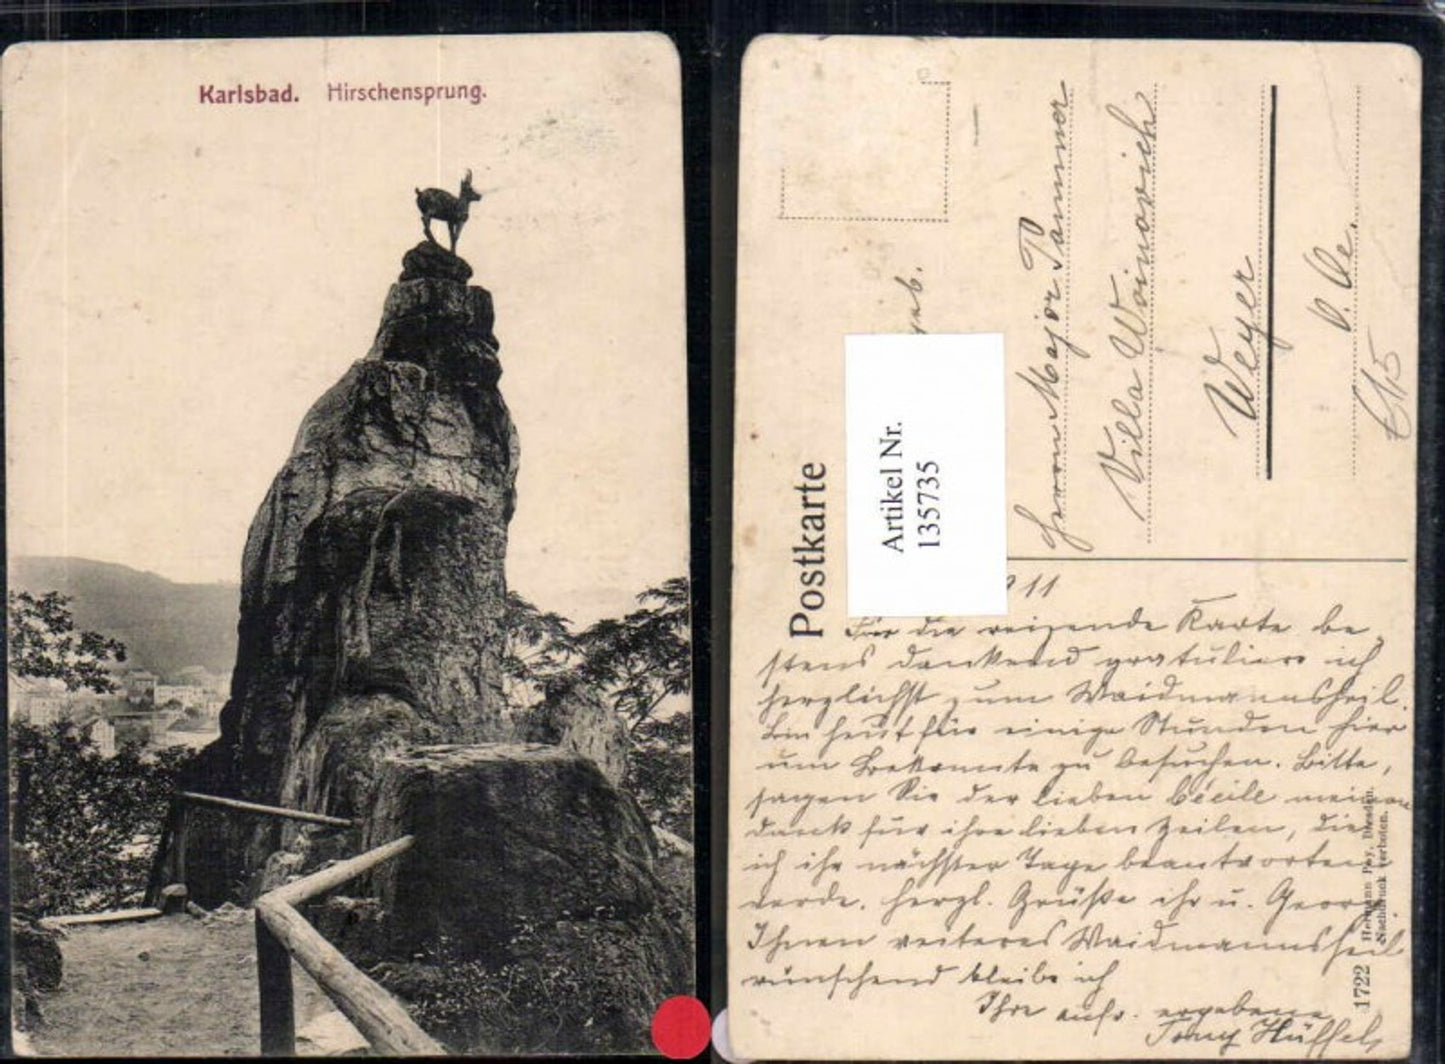 Karlsbad. Hirschensprung.
Postkarte
Artikel Nr.
135735
geb.
Herrn Major Pammer
Villa Woinovich
Weyer
O. Oe.
11
Für die reizende Karte be-
stens dankend gratuliere ich
herzlichst zum Waidmannsheil.
Bin heut für einige Stunden hier
um Bekannte zu besuchen. Bitte,
sagen Sie der lieben Cécile meinen
Dank für ihre lieben Zeilen, die
ich ihr nächster Tage beantworten
werde. Herzl. Grüße ihr u. Georg.
Ihnen weiteres Waidmannsheil
wünschend bleibe ich
Ihre aufr. ergebene
Hüffel
1722 Hermann Poy, Dresden.
Nachdruck verboten.